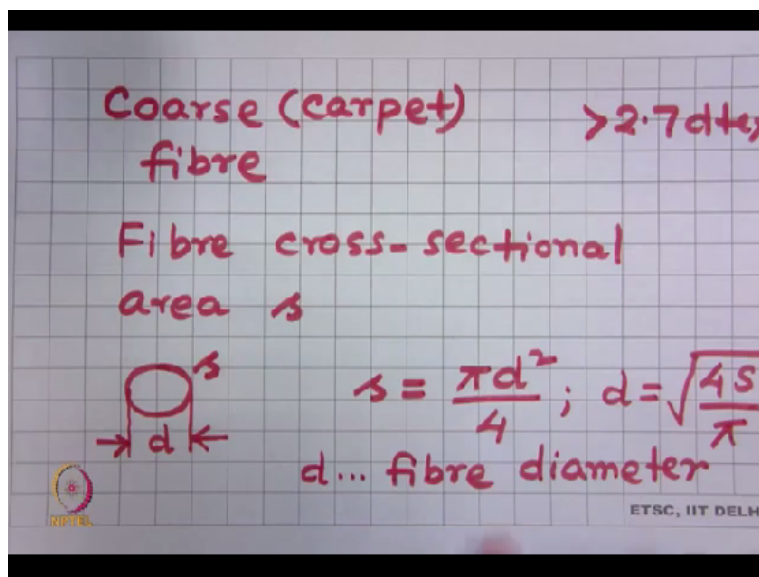 Coarse (carpet) >2.7 dtex
fibre
Fibre cross-sectional
area s
s
d
s = πd²/4 ; d = √(4s/π)
d... fibre diameter
NPTEL
ETSC, IIT DELH